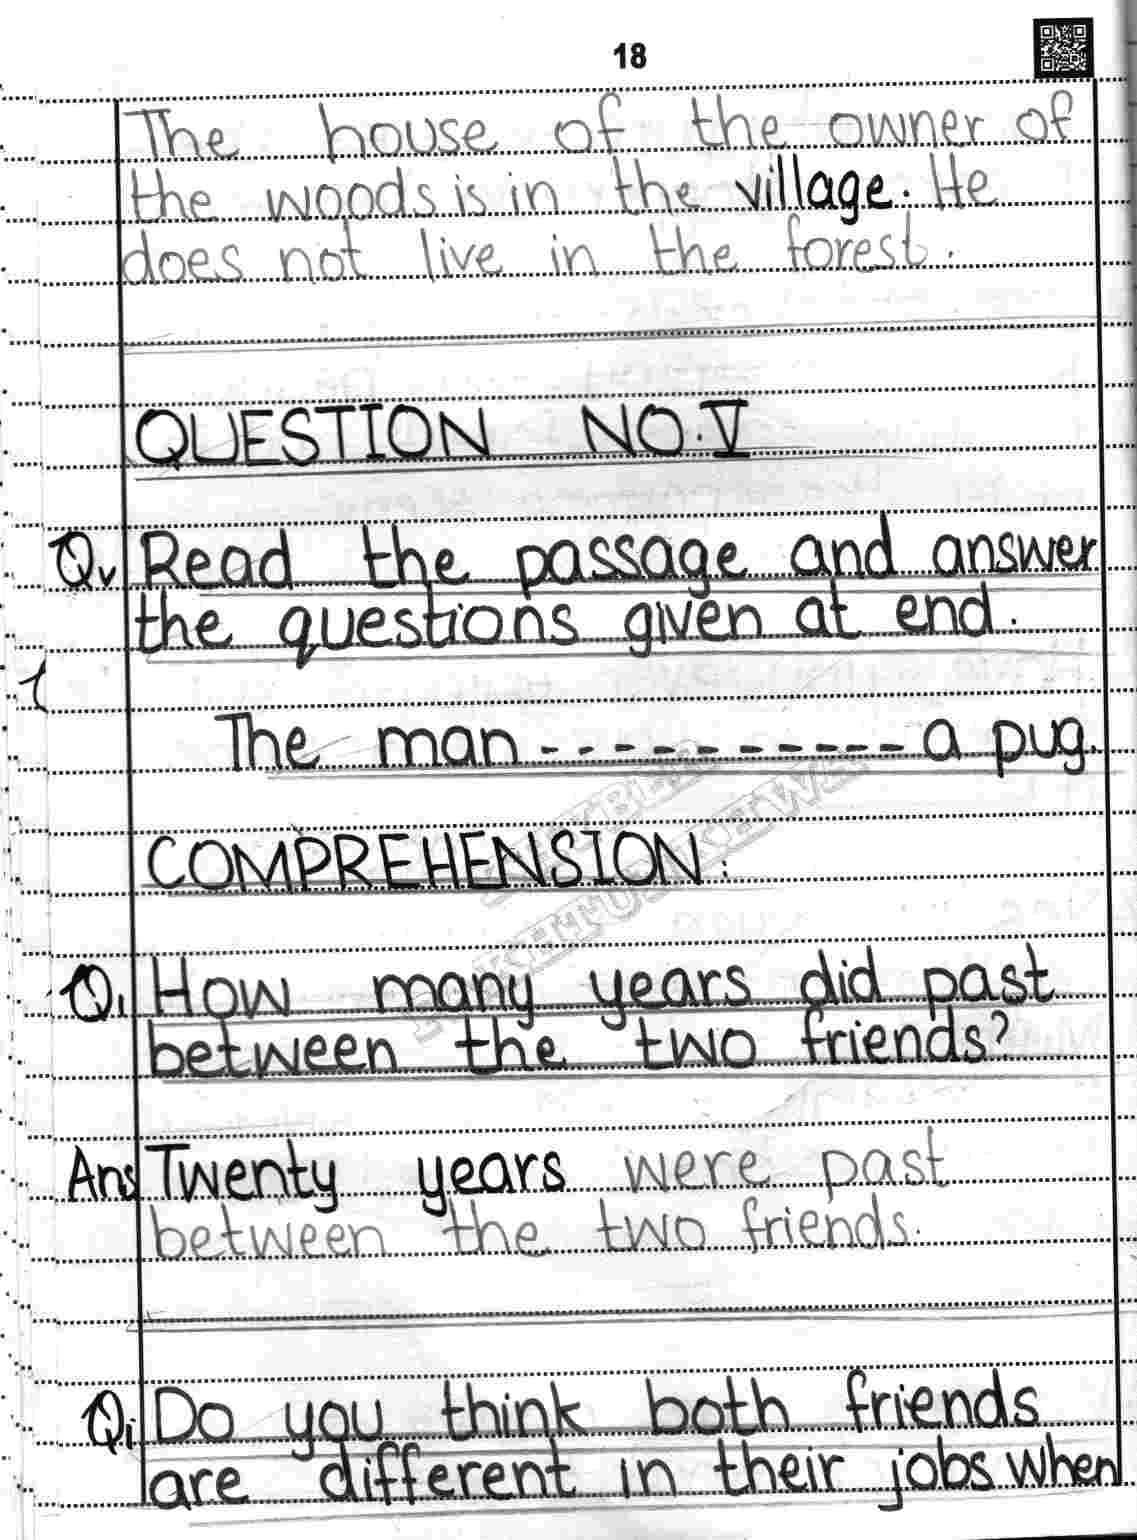 18
The house of the owner of
the woods is in the village. He
does not live in the forest.
QUESTION NO.V
Qv Read the passage and answer
the questions given at end.
The man - - - - - - - - - - a pug.
COMPREHENSION:
Qi How many years did past
between the two friends?
Ans Twenty years were past
between the two friends.
Qi Do you think both friends
are different in their jobs when